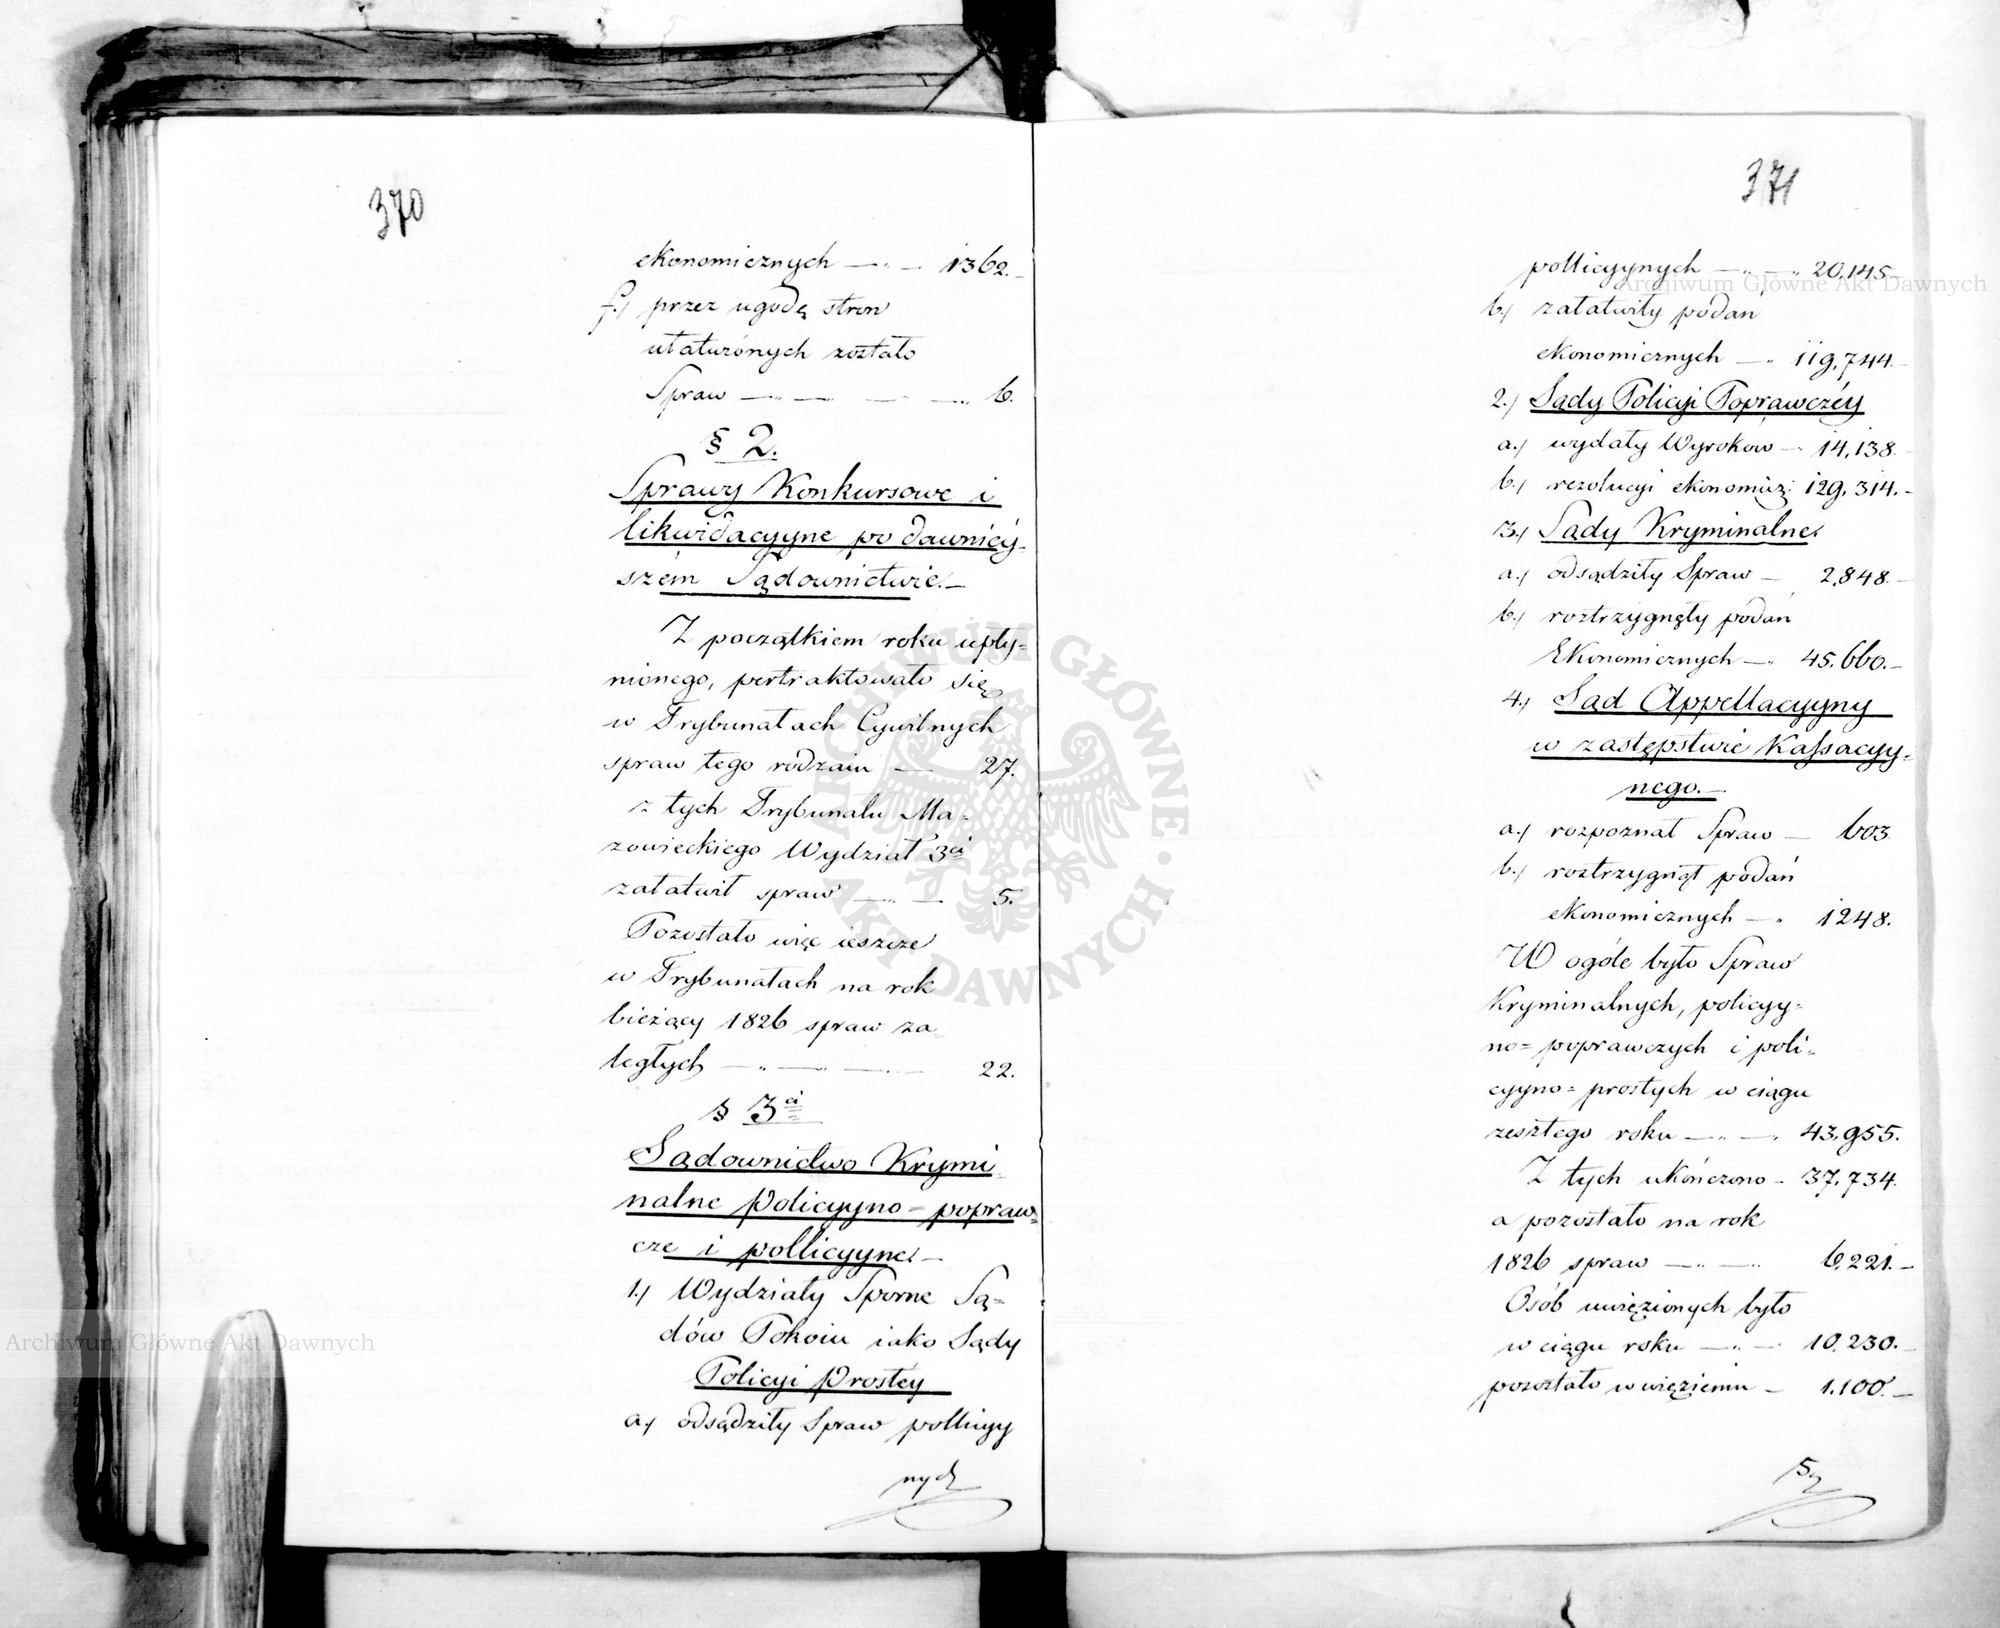 370
ekonomicznych — „ — 1362.—
f.) przez ugodę stron
ułatwionych zostało
Spraw — „ — — „ 6.
§ 2.
Sprawy Konkursowe i
likwidacyyne po dawniéy-
szém Sądownictwie.—
Z początkiem roku upły-
nionego, pertraktowało się
w Trybunałach Cywilnych
spraw tego rodzaiu — 27.
z tych Trybunału Ma-
zowieckiego Wydział 3ci
załatwił spraw — „ — 5.
Pozostało więc ieszcze
w Trybunałach na rok
bieżący 1826 spraw za-
ległych — „ — — „ — 22.
§ 3ci
Sądownictwo Krymi-
nalne policyyno-popraw-
cze i pollicyyne.—
1.) Wydziały Sporne Są-
dów Pokoiu iako Sądy
Policyi Prostéy
a.) odsądziły Spraw pollicyy
nych
371
pollicyynych — „ — „ 20,145.—
b.) załatwiły podań
ekonomicznych — „ 119,744.—
2.) Sądy Policyi Poprawczéy
a.) wydały Wyroków — 14,138.—
b.) rezolucyi ekonomicz: 129,314.—
3.) Sądy Kryminalne.
a.) odsądziły Spraw — 2,848.—
b.) roztrzygnęły podań
Ekonomicznych — „ 45,660.—
4.) Sąd Appellacyyny
w zastępstwie Kassacyy-
nego.—
a.) rozpoznał Spraw — 603
b.) roztrzygnął podań
ekonomicznych — „ 1248.
W ogóle było Spraw
Kryminalnych, policyy-
no-poprawczych i poli-
cyyno-prostych w ciągu
zeszłego roku — „ — „ 43,955.
Z tych ukończono — 37,734.
a pozostało na rok
1826 spraw — „ — 6,221.—
Osób uwięzionych było
w ciągu roku — „ — 10,230.—
pozostało w więzieniu — 1.100.—
Archiwum Główne Akt Dawnych
Archiwum Główne Akt Dawnych
ARCHIWUM GŁÓWNE · AKT DAWNYCH ·